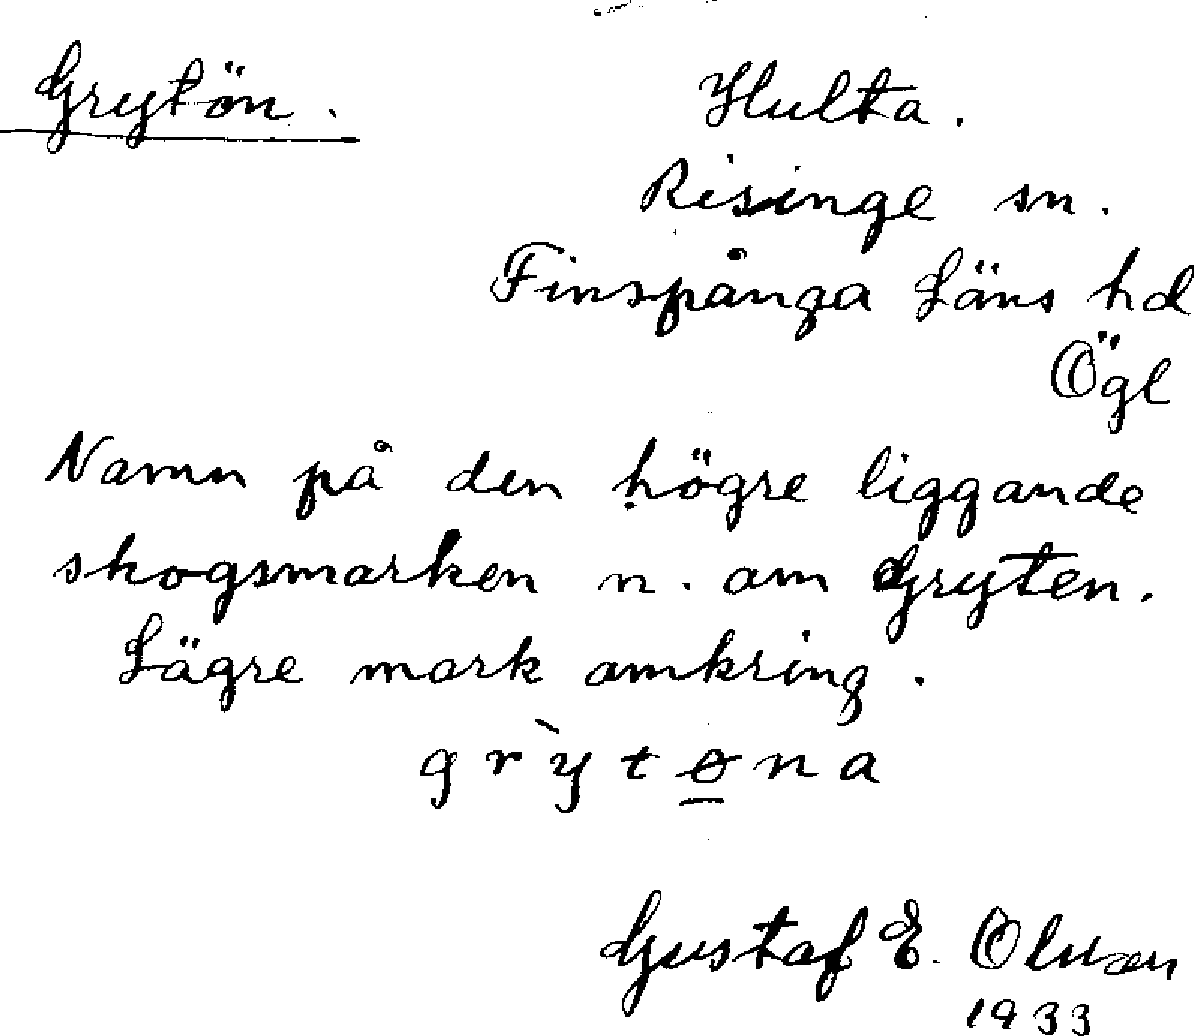 Grytön.
Hulta.
Risinge sn.
Finspånga Läns hd
Ögl
Namn på den högre liggande
skogsmarken n. om Gryten.
Lägre mark omkring.
grỳtøna
Gustaf E. Olsson
1933